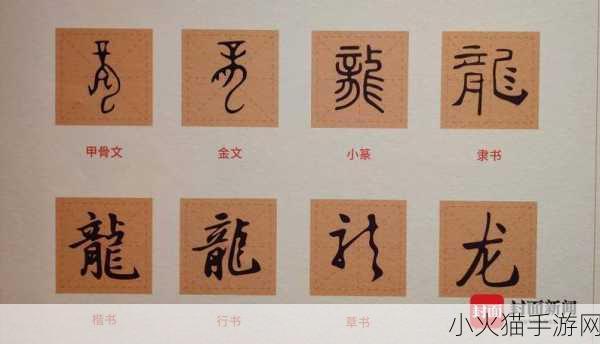 龍 龍 龍 龍
甲骨文 金文 小篆 隶书
龍 龍 龙 龙
楷书 行书 草书
封面 封面新闻
小火猫手游网